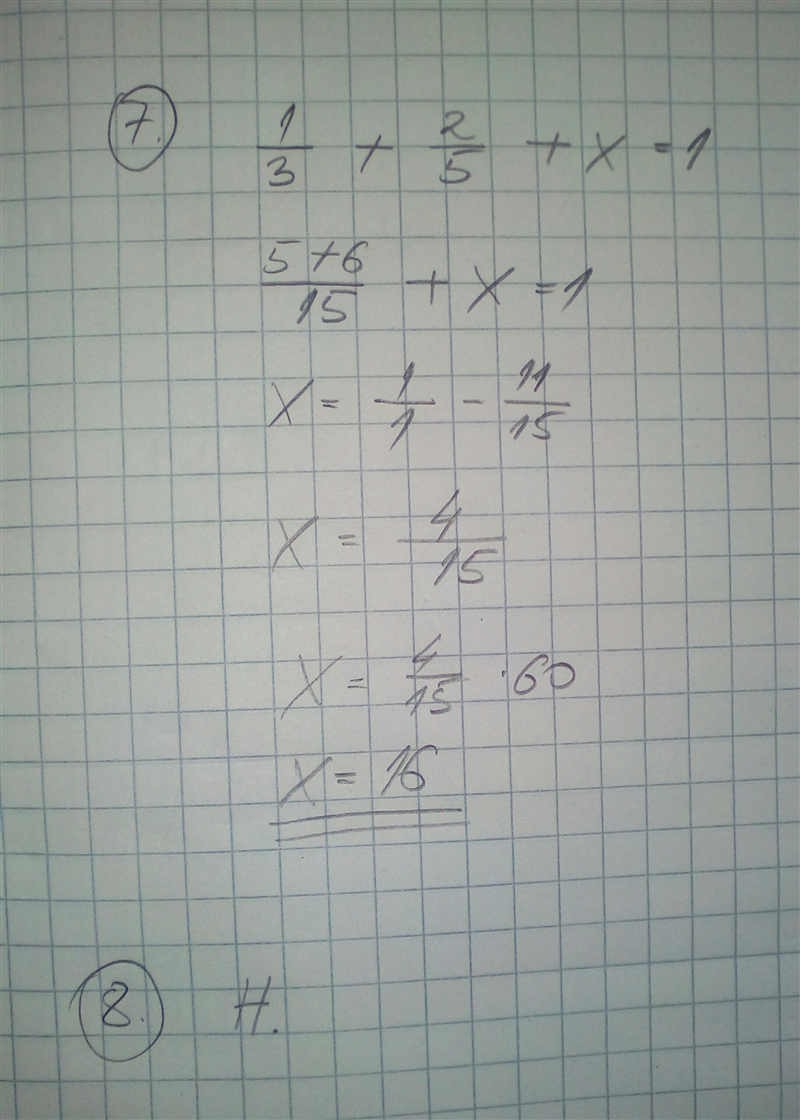 7. 1/3 + 2/5 + x = 1
5+6/15 + x = 1
x = 1/1 - 11/15
x = 4/15
x = 4/15 · 60
x = 16
8. H.